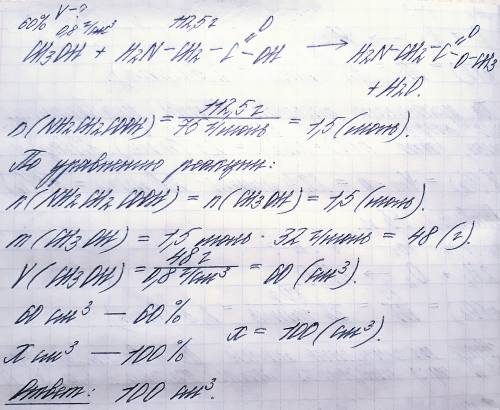 60% V-? 0,8 г/см³ 112,5 г O
CH₃OH + H₂N–CH₂–C–OH → H₂N–CH₂–C=O–O–CH₃
+ H₂O.
n(NH₂CH₂COOH) = 112,5 г / 75 г/моль = 1,5 (моль).
По уравнению реакции:
n(NH₂CH₂COOH) = n(CH₃OH) = 1,5 (моль).
m(CH₃OH) = 1,5 моль · 32 г/моль = 48 (г).
V(CH₃OH) = 48 г / 0,8 г/см³ = 60 (см³).
60 см³ — 60%
x см³ — 100%
x = 100 (см³).
Ответ: 100 см³.